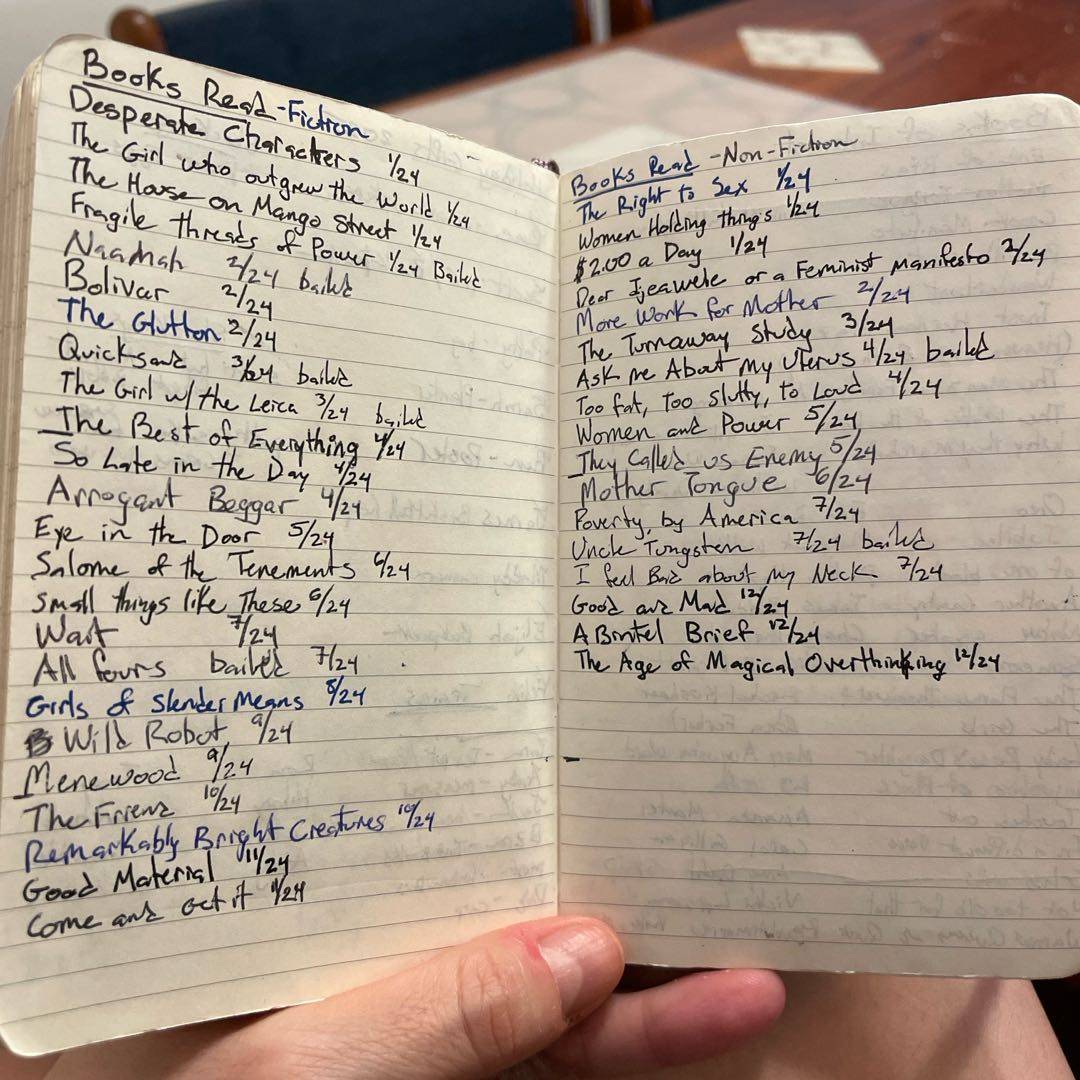 Books Read - Fiction
Desperate Characters 1/24
The Girl who outgrew the World 1/24
The House on Mango Street 1/24
Fragile threads of Power 1/24 Bailed
Naamah 2/24 bailed
Bolivar 2/24
The Glutton 2/24
Quicksand 3/24 bailed
The Girl w/ the Leica 3/24 bailed
The Best of Everything 4/24
So Late in the Day 4/24
Arrogant Beggar 4/24
Eye in the Door 5/24
Salome of the Tenements 6/24
Small things like These 6/24
Wait 7/24
All fours bailed 7/24
Girls of Slender Means 8/24
Wild Robot 9/24
Menewood 9/24
The Friend 10/24
Remarkably Bright Creatures 10/24
Good Material 11/24
Come and Get it 11/24
Books Read - Non-Fiction
The Right to Sex 1/24
Women Holding things 1/24
$2.00 a Day 1/24
Dear Ijeawele or a Feminist Manifesto 2/24
More Work for Mother 2/24
The Turnaway Study 3/24
Ask me About My Uterus 4/24 bailed
Too fat, too slutty, to Loud 4/24
Women and Power 5/24
They Called us Enemy 5/24
Mother Tongue 6/24
Poverty, by America 7/24
Uncle Tungsten 7/24 bailed
I feel Bad about my Neck 7/24
Good and Mad 12/24
A Bintel Brief 12/24
The Age of Magical Overthinking 12/24